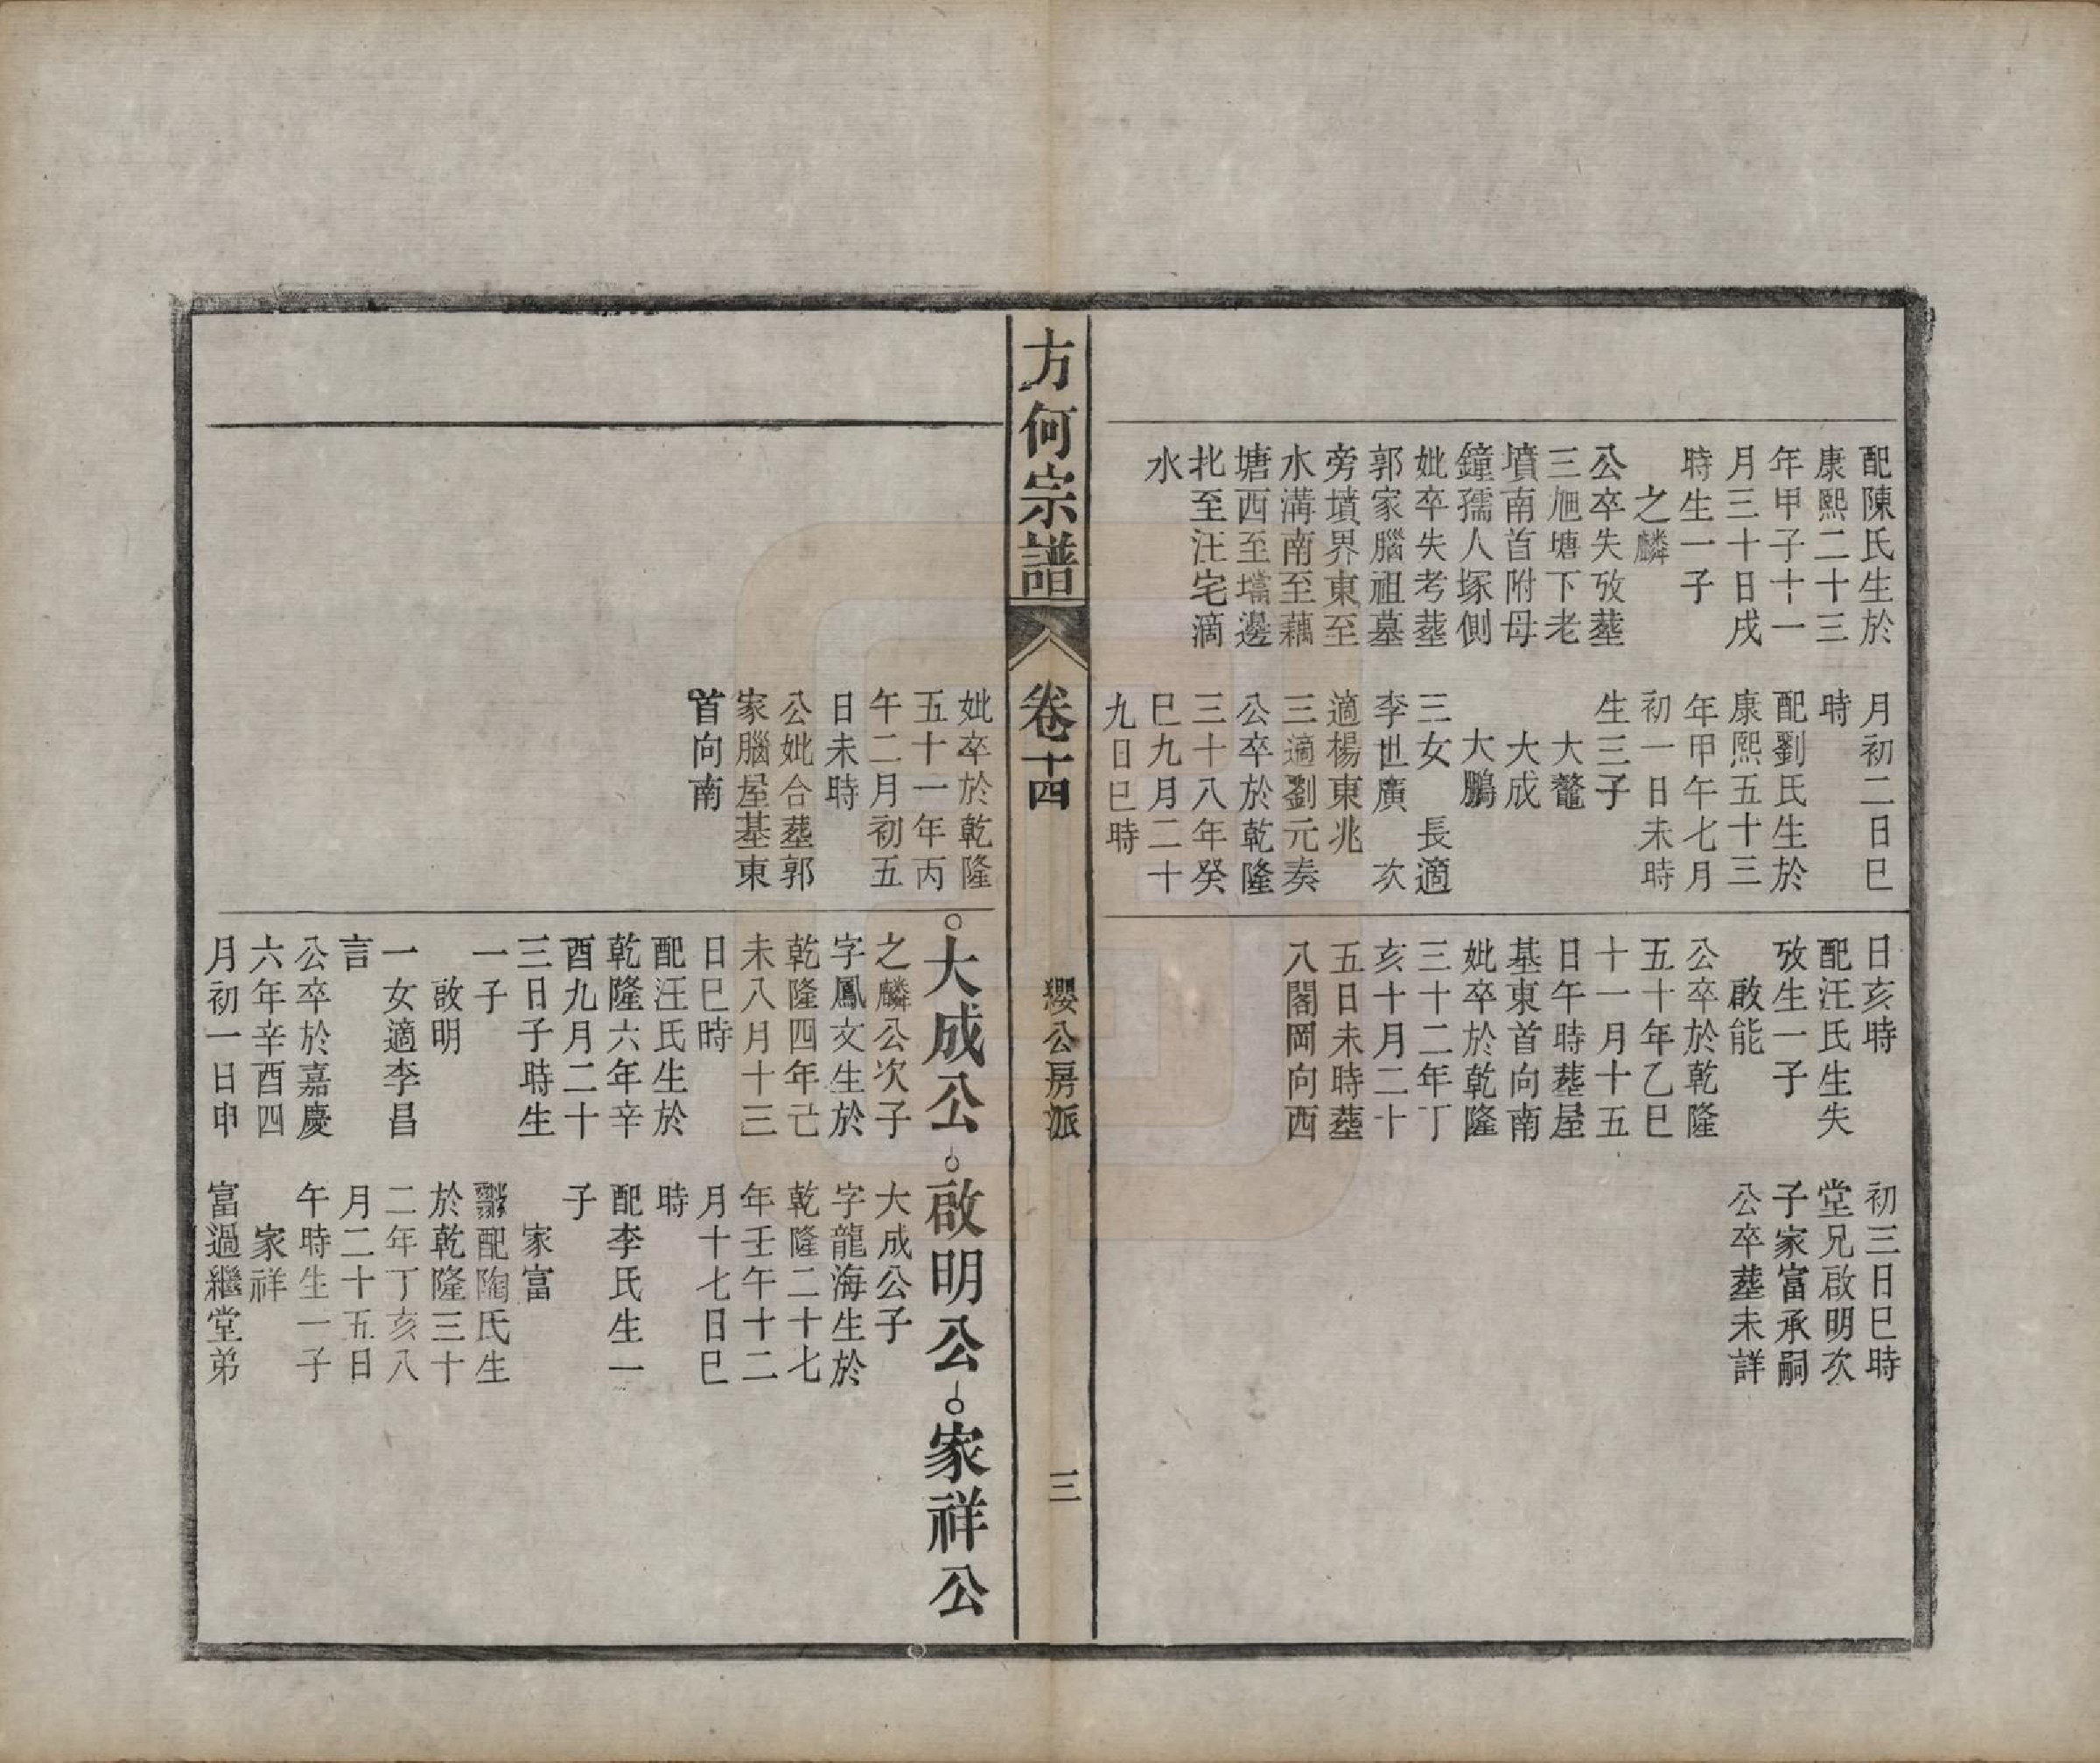 配陳氏生於
康熙二十三
年甲子十一
月三十日戌
時生一子
之麟
公卒失攷葬
三𣃁塘下老
墳南首附母
鐘孺人塚側
妣卒失考葬
郭家腦祖墓
旁墳界東至
水溝南至藕
塘西至壪邊
北至汪宅滴
水
月初二日巳
時
配劉氏生於
康熙五十三
年甲午七月
初一日未時
生三子
大鼇
大成
大鵬
三女 長適
李世廣 次
適楊東兆
三適劉元奏
公卒於乾隆
三十八年癸
巳九月二十
九日巳時
日亥時
配汪氏生失
攷生一子
啟能
公卒於乾隆
五十年乙巳
十一月十五
日午時葬屋
基東首向南
妣卒於乾隆
三十二年丁
亥十月二十
五日未時葬
八閣岡向西
初三日巳時
堂兄啟明次
子家富承嗣
公卒葬未詳
方何宗譜 卷十四 纓公房派 三
妣卒於乾隆
五十一年丙
午二月初五
日未時
公妣合葬郭
家腦屋基東
首向南
大成公
之麟公次子
字鳳文生於
乾隆四年己
未八月十三
日巳時
配汪氏生於
乾隆六年辛
酉九月二十
三日子時生
一子
啟明
一女適李昌
言
公卒於嘉慶
六年辛酉四
月初一日申
啟明公
大成公子
字龍海生於
乾隆二十七
年壬午十二
月十七日巳
時
配李氏生一
子
家富
配陶氏生
於乾隆三十
二年丁亥八
月二十五日
午時生一子
家祥
富過繼堂弟
家祥公